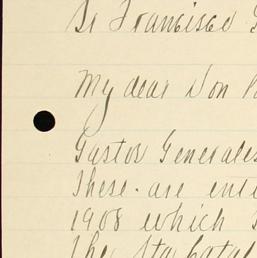 Sr Francisco
My dear Don
Gastos Generales
These are
1908 which
the Sta